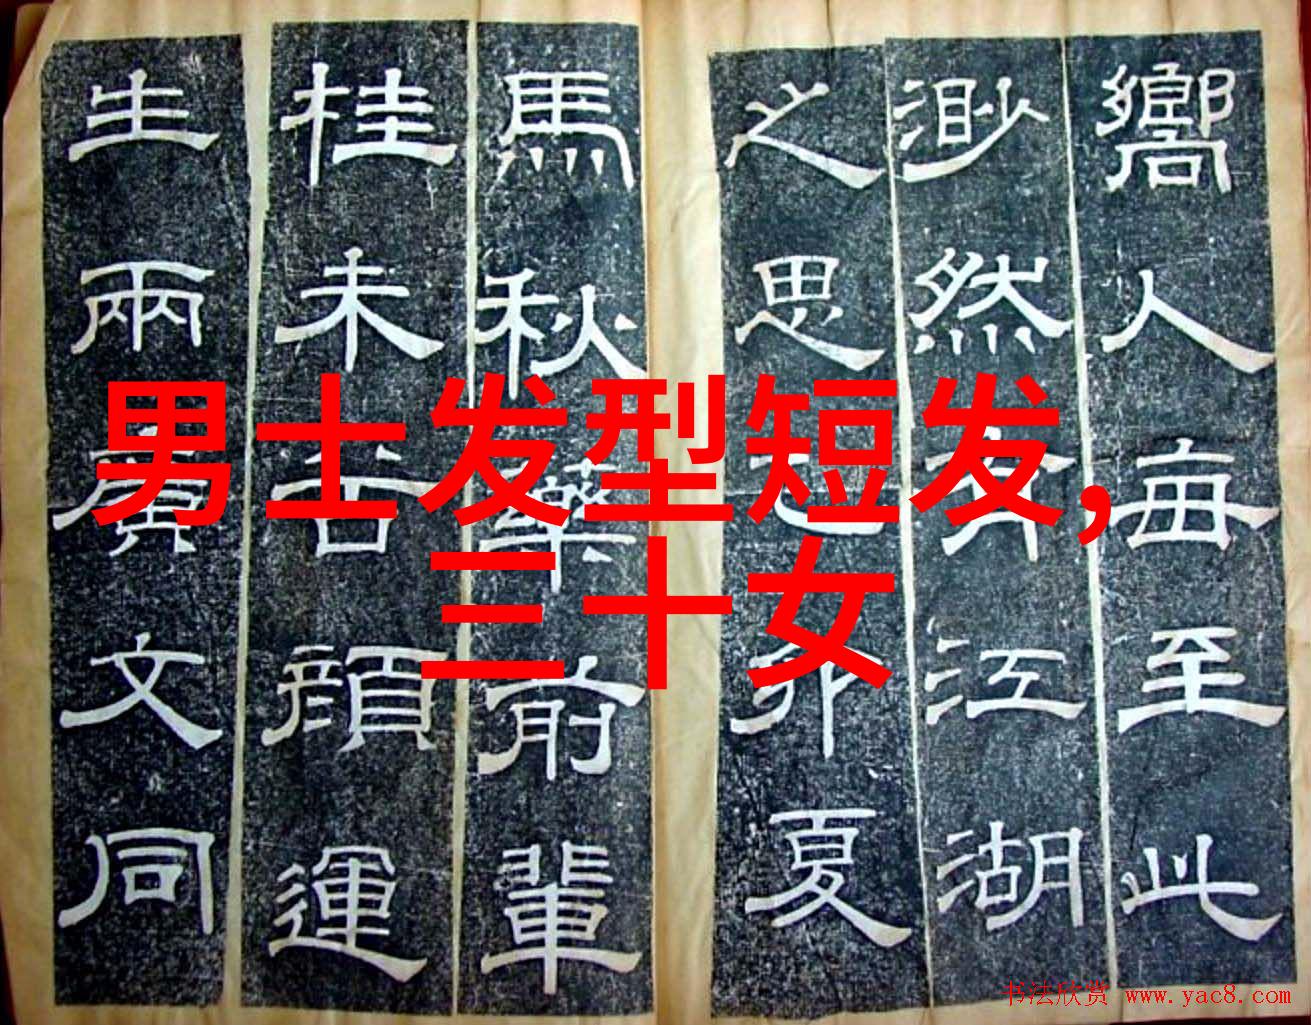 男士发型短发,
三十女
嚮人每至此
渺然有江湖
之思己卯夏
馬秋藥前輩
桂未谷顔運
生兩廣文同
书法欣赏 www.yac8.com